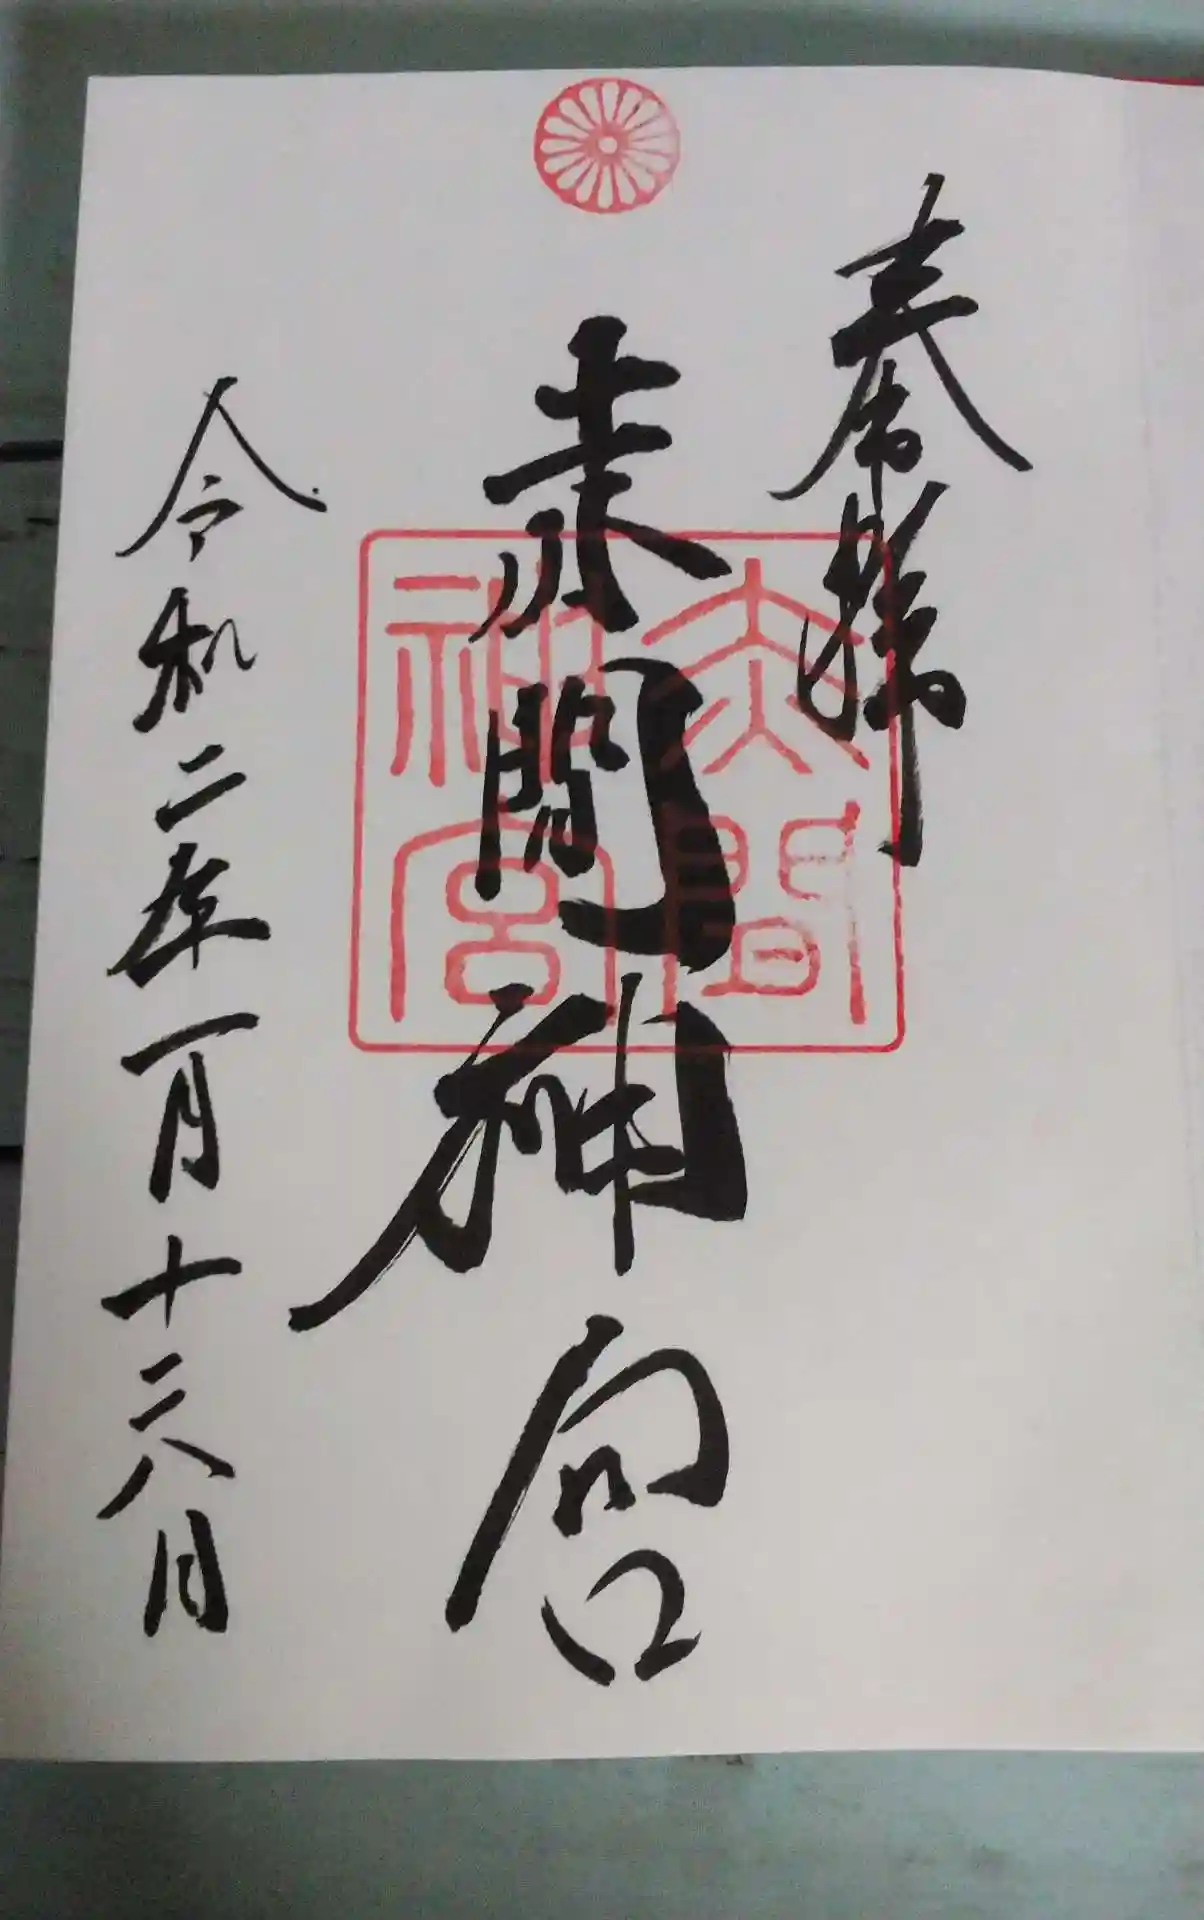 奉拝
赤間神宮
令和二年一月十六日
赤間
神宮